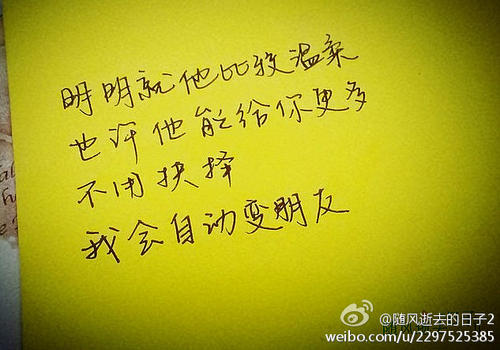 明明就他比较温柔
也许他能给你更多
不用抉择
我会自动变朋友
@随风逝去的日子2
weibo.com/u/2297525385